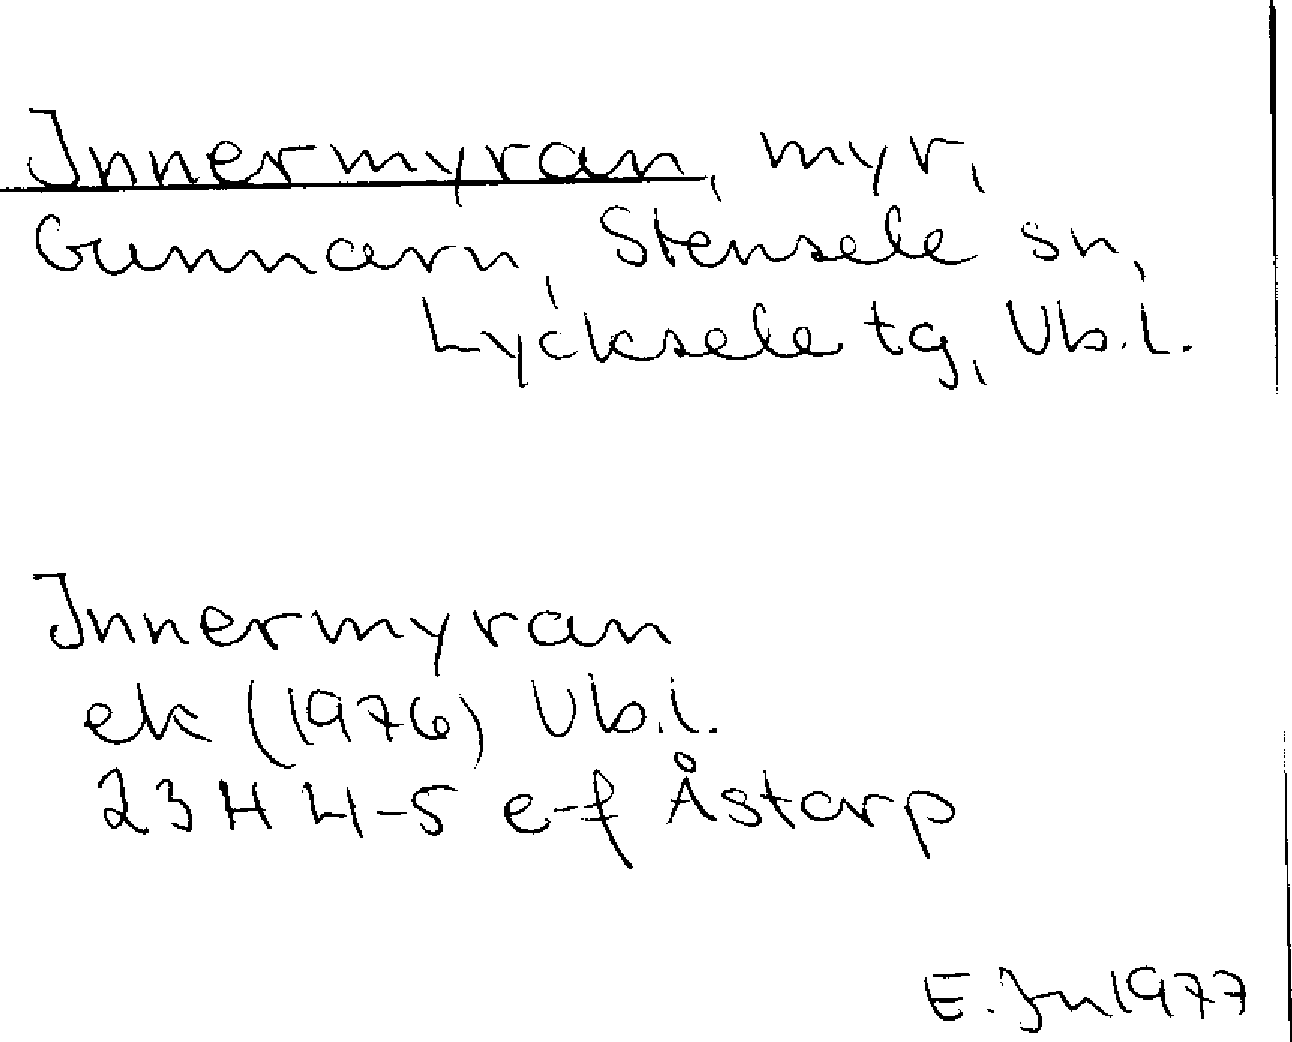 Innermyran, myr,
Gunnarn, Stensele sn,
Lycksele tg, Vb.l.
Innermyran
ek (1976) Vb.l.
23 H 4-5 e-f Åstarp
E. Jn 1977